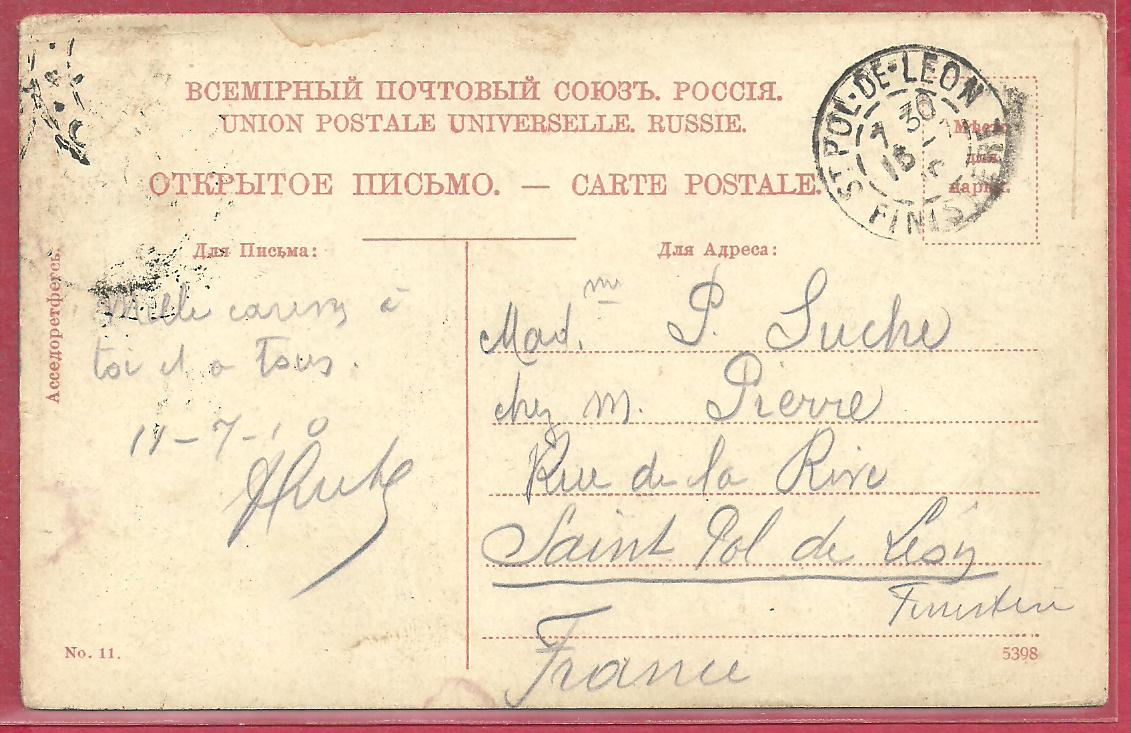 ВСЕМІРНЫЙ ПОЧТОВЫЙ СОЮЗЪ. РОССІЯ.
UNION POSTALE UNIVERSELLE. RUSSIE.
ОТКРЫТОЕ ПИСЬМО. — CARTE POSTALE.
ST POL-DE-LEON
7 30
15
FINISTERE
Мѣсто
для
марки.
Для Письма:
Mille caresses à
toi et a tous.
11-7-10
Асседоретфегсъ.
No. 11.
Для Адреса:
Mad.me P. Luche
chez M. Pierre
Rue de la Rive
Saint Pol de Léon
Finistère
France
5398